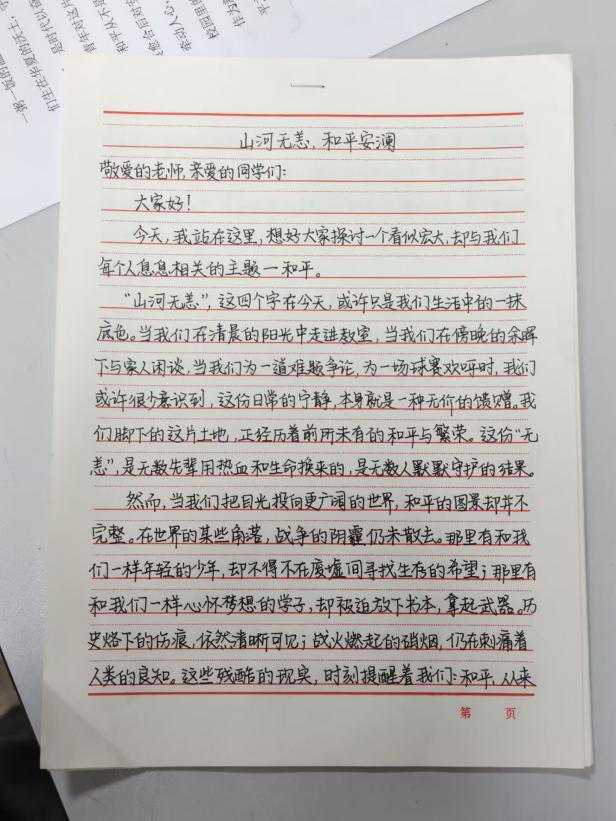 山河无恙，和平安澜
敬爱的老师，亲爱的同学们：
大家好！
今天，我站在这里，想好大家探讨一个看似宏大，却与我们
每个人息息相关的主题—和平。
“山河无恙”，这四个字在今天，或许只是我们生活中的一抹
底色。当我们在清晨的阳光中走进教室，当我们在傍晚的余晖
下与家人闲谈，当我们为一道难题争论，为一场球赛欢呼时，我们
或许很少意识到，这份日常的宁静，本身就是一种无价的馈赠。我
们脚下的这片土地，正经历着前所未有的和平与繁荣。这份“无
恙”，是无数先辈用热血和生命换来的，是无数人默默守护的结果。
然而，当我们把目光投向更广阔的世界，和平的图景却并不
完整。在世界的某些角落，战争的阴霾仍未散去。那里有和我
们一样年轻的少年，却不得不在废墟间寻找生存的希望；那里有
和我们一样心怀梦想的学子，却被迫放下书本，拿起武器。历
史烙下的伤痕，依然清晰可见；战火燃起的硝烟，仍在刺痛着
人类的良知。这些残酷的现实，时刻提醒着我们：和平，从来
第 页